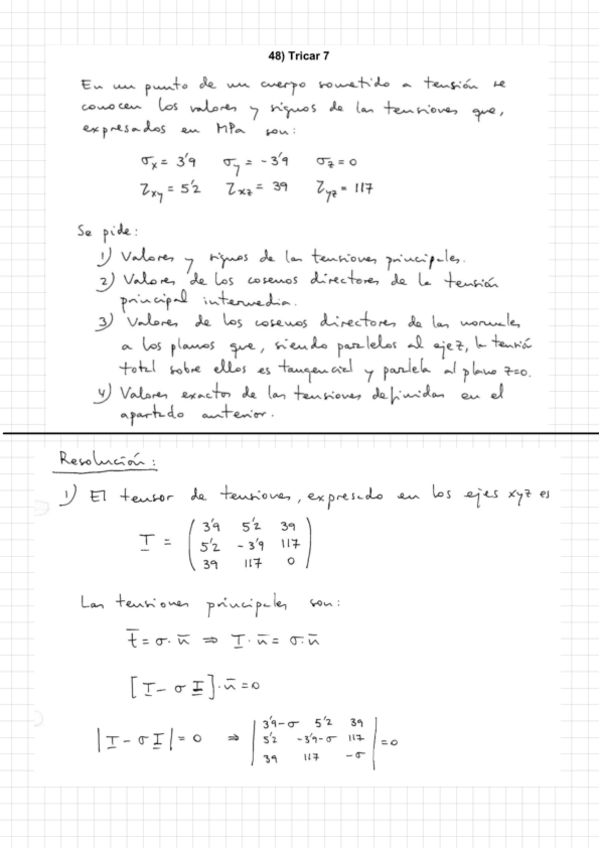 48) Tricar 7
En un punto de un cuerpo sometido a tensión se
conocen los valores y signos de las tensiones que,
expresados en MPa son:
σx = 3'9 σy = -3'9 σz = 0
τxy = 5'2 τxz = 39 τyz = 117
Se pide:
1) Valores y signos de las tensiones principales.
2) Valores de los cosenos directores de la tensión
principal intermedia.
3) Valores de los cosenos directores de las normales
a los planos que, siendo paralelos al eje z, la tensión
total sobre ellos es tangencial y paralela al plano z=0.
4) Valores exactos de las tensiones definidas en el
apartado anterior.
Resolución:
1) El tensor de tensiones, expresado en los ejes xyz es
T = ( 3'9 5'2 39
5'2 -3'9 117
39 117 0 )
Las tensiones principales son:
t̄ = σ· n̄ ⇒ T· n̄ = σ· n̄
[T - σ I]· n̄ = 0
|T - σ I| = 0 ⇒ | 3'9-σ 5'2 39
5'2 -3'9-σ 117
39 117 -σ | = 0